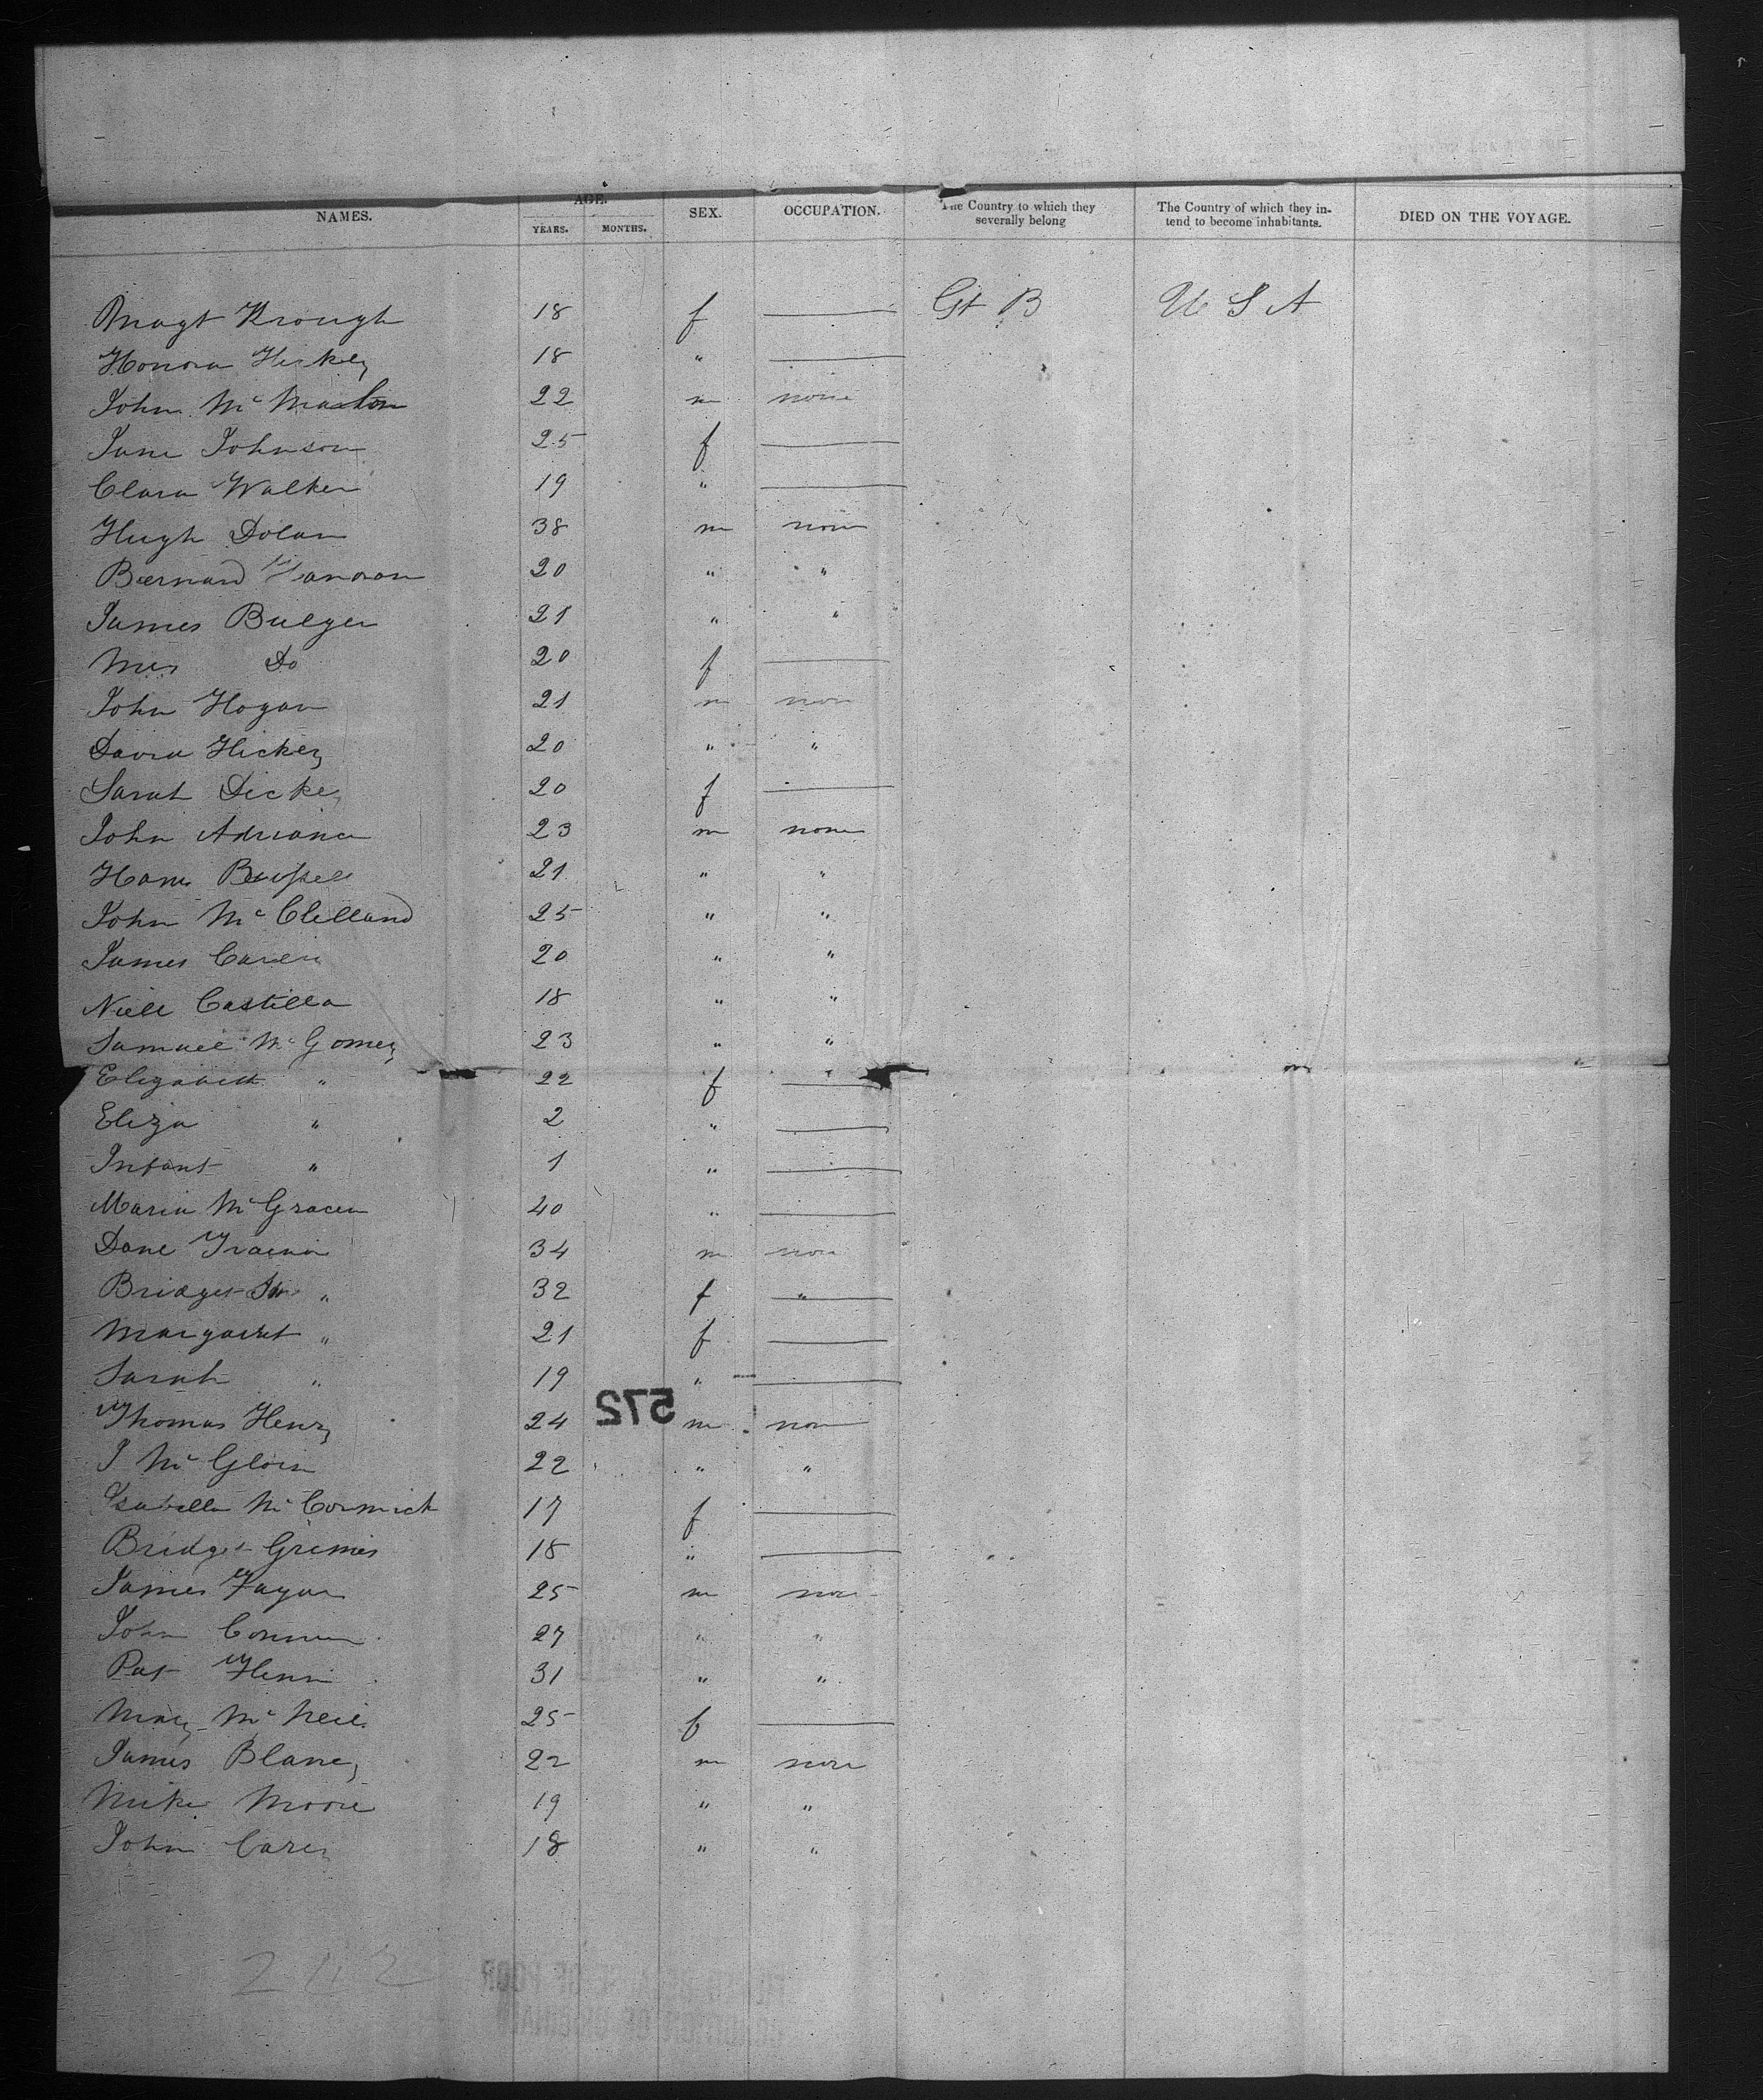 NAMES. AGE. SEX. OCCUPATION. The Country to which they severally belong The Country of which they in- tend to become inhabitants. DIED ON THE VOYAGE.
YEARS. MONTHS.
Magt Krough 18 f — Gt B U S A
Honora Hickey 18 " —
John Mc Mahon 22 m none
Jane Johnson 25 f —
Clara Walker 19 " —
Hugh Dolan 38 m none
Bernard 20 " "
James Bulger 21 " "
Mrs Do 20 f —
John Hogan 21 m non
David Hickey 20 " "
Sarah Dickey 20 f —
John Adriance 23 m none
Hans 21 " "
John Mc Clelland 25 " "
James 20 " "
Niell Castilla 18 " "
Samuel Mc Gomey 23 " "
Elizabeth " 22 f —
Eliza " 2 " —
Infant " 1 " —
Maria Mc Gracen 40 " —
Dane Trainor 34 m non
Bridget " 32 f "
Margaret " 21 f —
Sarah " 19 " —
Thomas Henry 24 m non
J Mc Gloin 22 " "
Isabella Mc Cormick 17 f —
Bridget Grimes 18 " —
James Fagan 25 m non
John 27 " "
Pat 31 " "
Mary Mc Neil 25 f —
James Blaney 22 m none
Mike Moore 19 " "
John Carey 18 " "
572